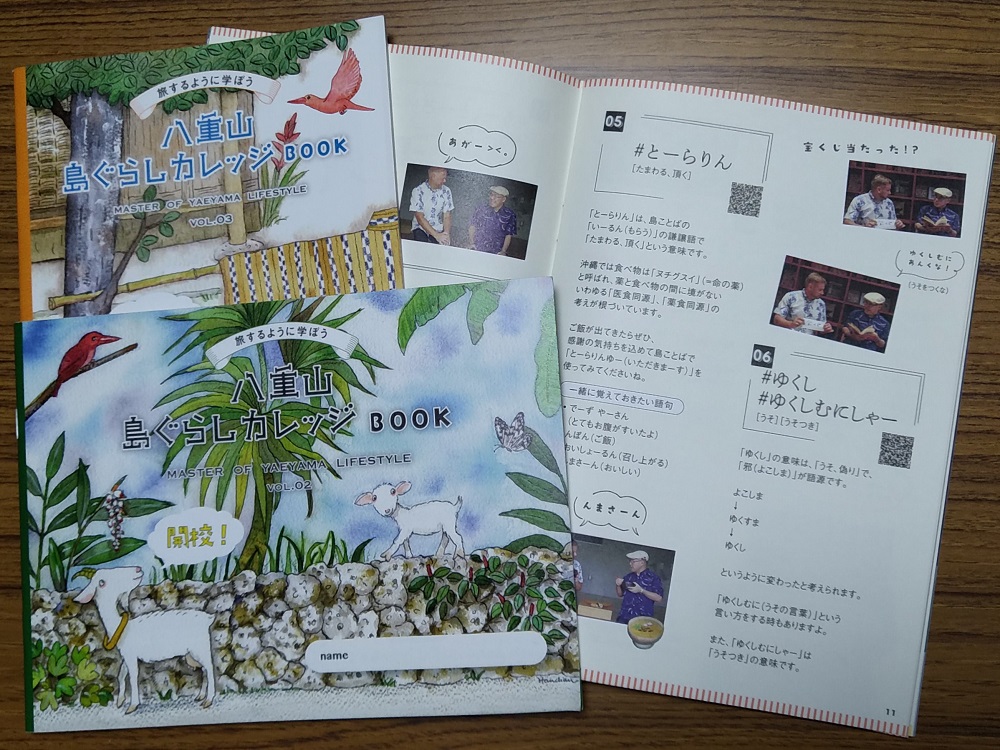 旅するように学ぼう
八重山
島ぐらしカレッジ BOOK
MASTER OF YAEYAMA LIFESTYLE
VOL.03
旅するように学ぼう
八重山
島ぐらしカレッジ BOOK
MASTER OF YAEYAMA LIFESTYLE
VOL.02
開校!
name
あがーっく。
05
#とーらりん
[たまわる、頂く]
「とーらりん」は、島ことばの
「いーるん(もらう)」の謙譲語で
「たまわる、頂く」という意味です。
沖縄では食べ物は「ヌチグスイ」(=命の薬)
と呼ばれ、薬と食べ物の間に境がない
いわゆる「医食同源」、「薬食同源」の
考えが根づいています。
ご飯が出てきたらぜひ、
感謝の気持ちを込めて島ことばで
「とーらりんゆー(いただきまーす)」を
使ってみてくださいね。
一緒に覚えておきたい語句
でーず やーさん
(とてもお腹がすいたよ)
んぼん(ご飯)
おいしょーるん(召し上がる)
まさーん(おいしい)
んまさーん
宝くじ当たった!?
ゆくしむに
あんくな!
(うそをつくな)
06
#ゆくし
#ゆくしむにしゃー
[うそ][うそつき]
「ゆくし」の意味は、「うそ、偽り」で、
「邪(よこしま)」が語源です。
よこしま
↓
ゆくすま
↓
ゆくし
というように変わったと考えられます。
「ゆくしむに(うその言葉)」という
言い方をする時もありますよ。
また、「ゆくしむにしゃー」は
「うそつき」の意味です。
11